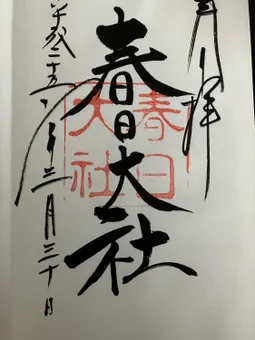 奉拝
春日大社
春日大社
平成二十五年三月三十日